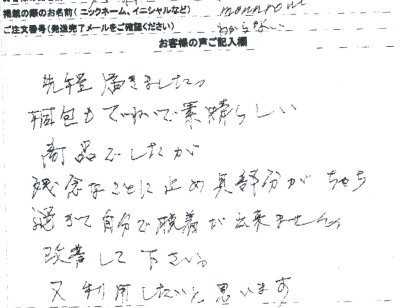 掲載の際のお名前(ニックネーム、イニシャルなど)
ご注文番号(発送完了メールをご確認ください) わからない
お客様の声ご記入欄
先程届きました。
梱包もていねいで素晴らしい
商品でしたが
残念なことに止め具部分がちゃち
過ぎて自分で脱着が出来ません。
改善して下さい。
又利用したいと思います